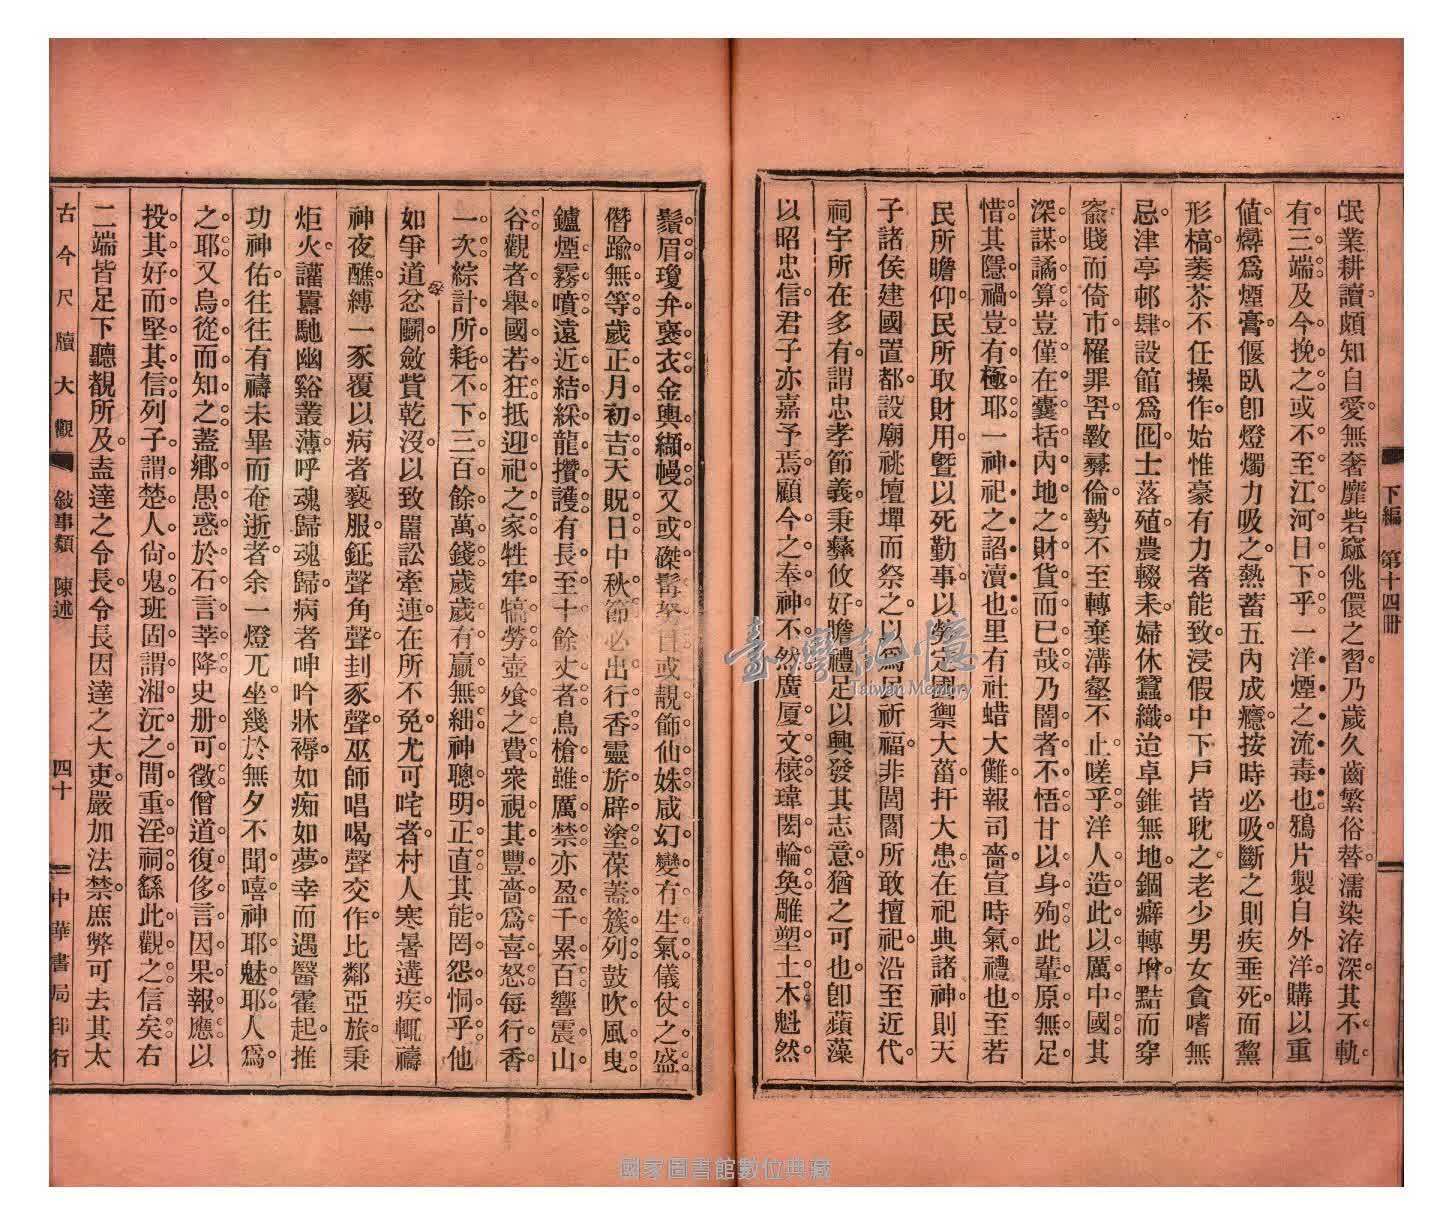 下編 第十四冊
氓業耕讀。頗知自愛。無奢靡呰窳佻儇之習。乃歲久齒繁。俗替濡染洊深。其不軌。
有三端。及今挽之。或不至江河日下乎。一洋煙之流毒也。鴉片製自外洋。購以重
値。燖爲煙膏。偃臥卽燈燭力吸之。熱蓄五內成癮。按時必吸。斷之則疾垂死。而黧
形槁。萎苶不任操作。始惟豪有力者能致。浸假中下戶皆耽之。老少男女貪嗜無
忌。津亭邨肆。設館爲囮。士落殖。農輟耒。婦休蠶織。迨卓錐無地。錮癖轉增。黠而穿
窬。賤而倚市。罹罪罟。斁彝倫。勢不至轉棄溝壑不止。嗟乎。洋人造此以厲中國。其
深謀譎算。豈僅在囊括內地之財貨而已哉。乃闇者不悟。甘以身殉。此輩原無足
惜。其隱禍豈有極耶。一神祀之諂瀆也。里有社蜡大儺。報司嗇。宣時氣。禮也。至若
民所瞻仰。民所取財用。曁以死勤事。以勞定國。禦大菑。扞大患。在祀典諸神。則天
子諸侯建國置都。設廟祧壇墠而祭之。以爲民祈福。非閭閻所敢擅祀。沿至近代。
祠宇所在多有。謂忠孝節義。秉彝攸好。贍禮足以興發其志意。猶之可也。卽蘋藻
以昭忠信。君子亦嘉予焉。顧今之奉神不然。廣厦文榱。瑋閎輪奐。雕塑土木。魁然
鬚眉。瓊弁袞衣。金輿纈幔。又或磔髯努目。或靚飾仙姝。咸幻變有生氣。儀仗之盛。
僭踰無等。歲正月初吉天貺日中秋節。必出行香。靈旂辟塗。葆蓋簇列。鼓吹風曳。
鑪煙霧噴。遠近結綵龍攢護。有長至十餘丈者。鳥槍雖厲禁。亦盈千累百。響震山
谷。觀者舉國若狂。抵迎祀之家。牲牢犒勞壺飱之費。衆視其豐嗇爲喜怒。每行香
一次。綜計所耗不下三百餘萬錢。歲歲有贏無絀。神聰明正直。其能罔怨恫乎。他
如爭道忿鬭。斂貲乾沒。以致嚚訟牽連。在所不免。尤可咤者。村人寒暑遘疾。輒禱
神夜醮。縛一豕。覆以病者褻服。鉦聲角聲封豕聲。巫師唱喝聲交作。比鄰亞旅。秉
炬火。讙囂馳幽谿叢薄。呼魂歸魂歸。病者呻吟牀褥。如痴如夢。幸而遇醫霍起。推
功神佑。往往有禱未畢而奄逝者。余一燈兀坐。幾於無夕不聞。嘻。神耶魅耶。人爲
之耶。又烏從而知之。蓋鄉愚惑於石言莘降。史册可徵。僧道復侈言因果報應。以
投其好而堅其信。列子謂楚人尙鬼。班固謂湘沅之閒重淫祠。繇此觀之信矣。右
二端皆足下聽覩所及。盍達之令長。令長因達之大吏。嚴加法禁。庶弊可去其太
古今尺牘大觀 敍事類 陳述 四十 中華書局印行
臺灣記憶
Taiwan Memory
國家圖書館數位典藏